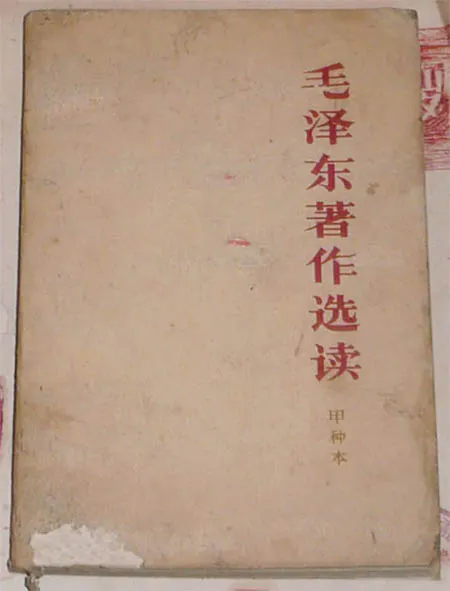 毛泽东著作选读
甲种本